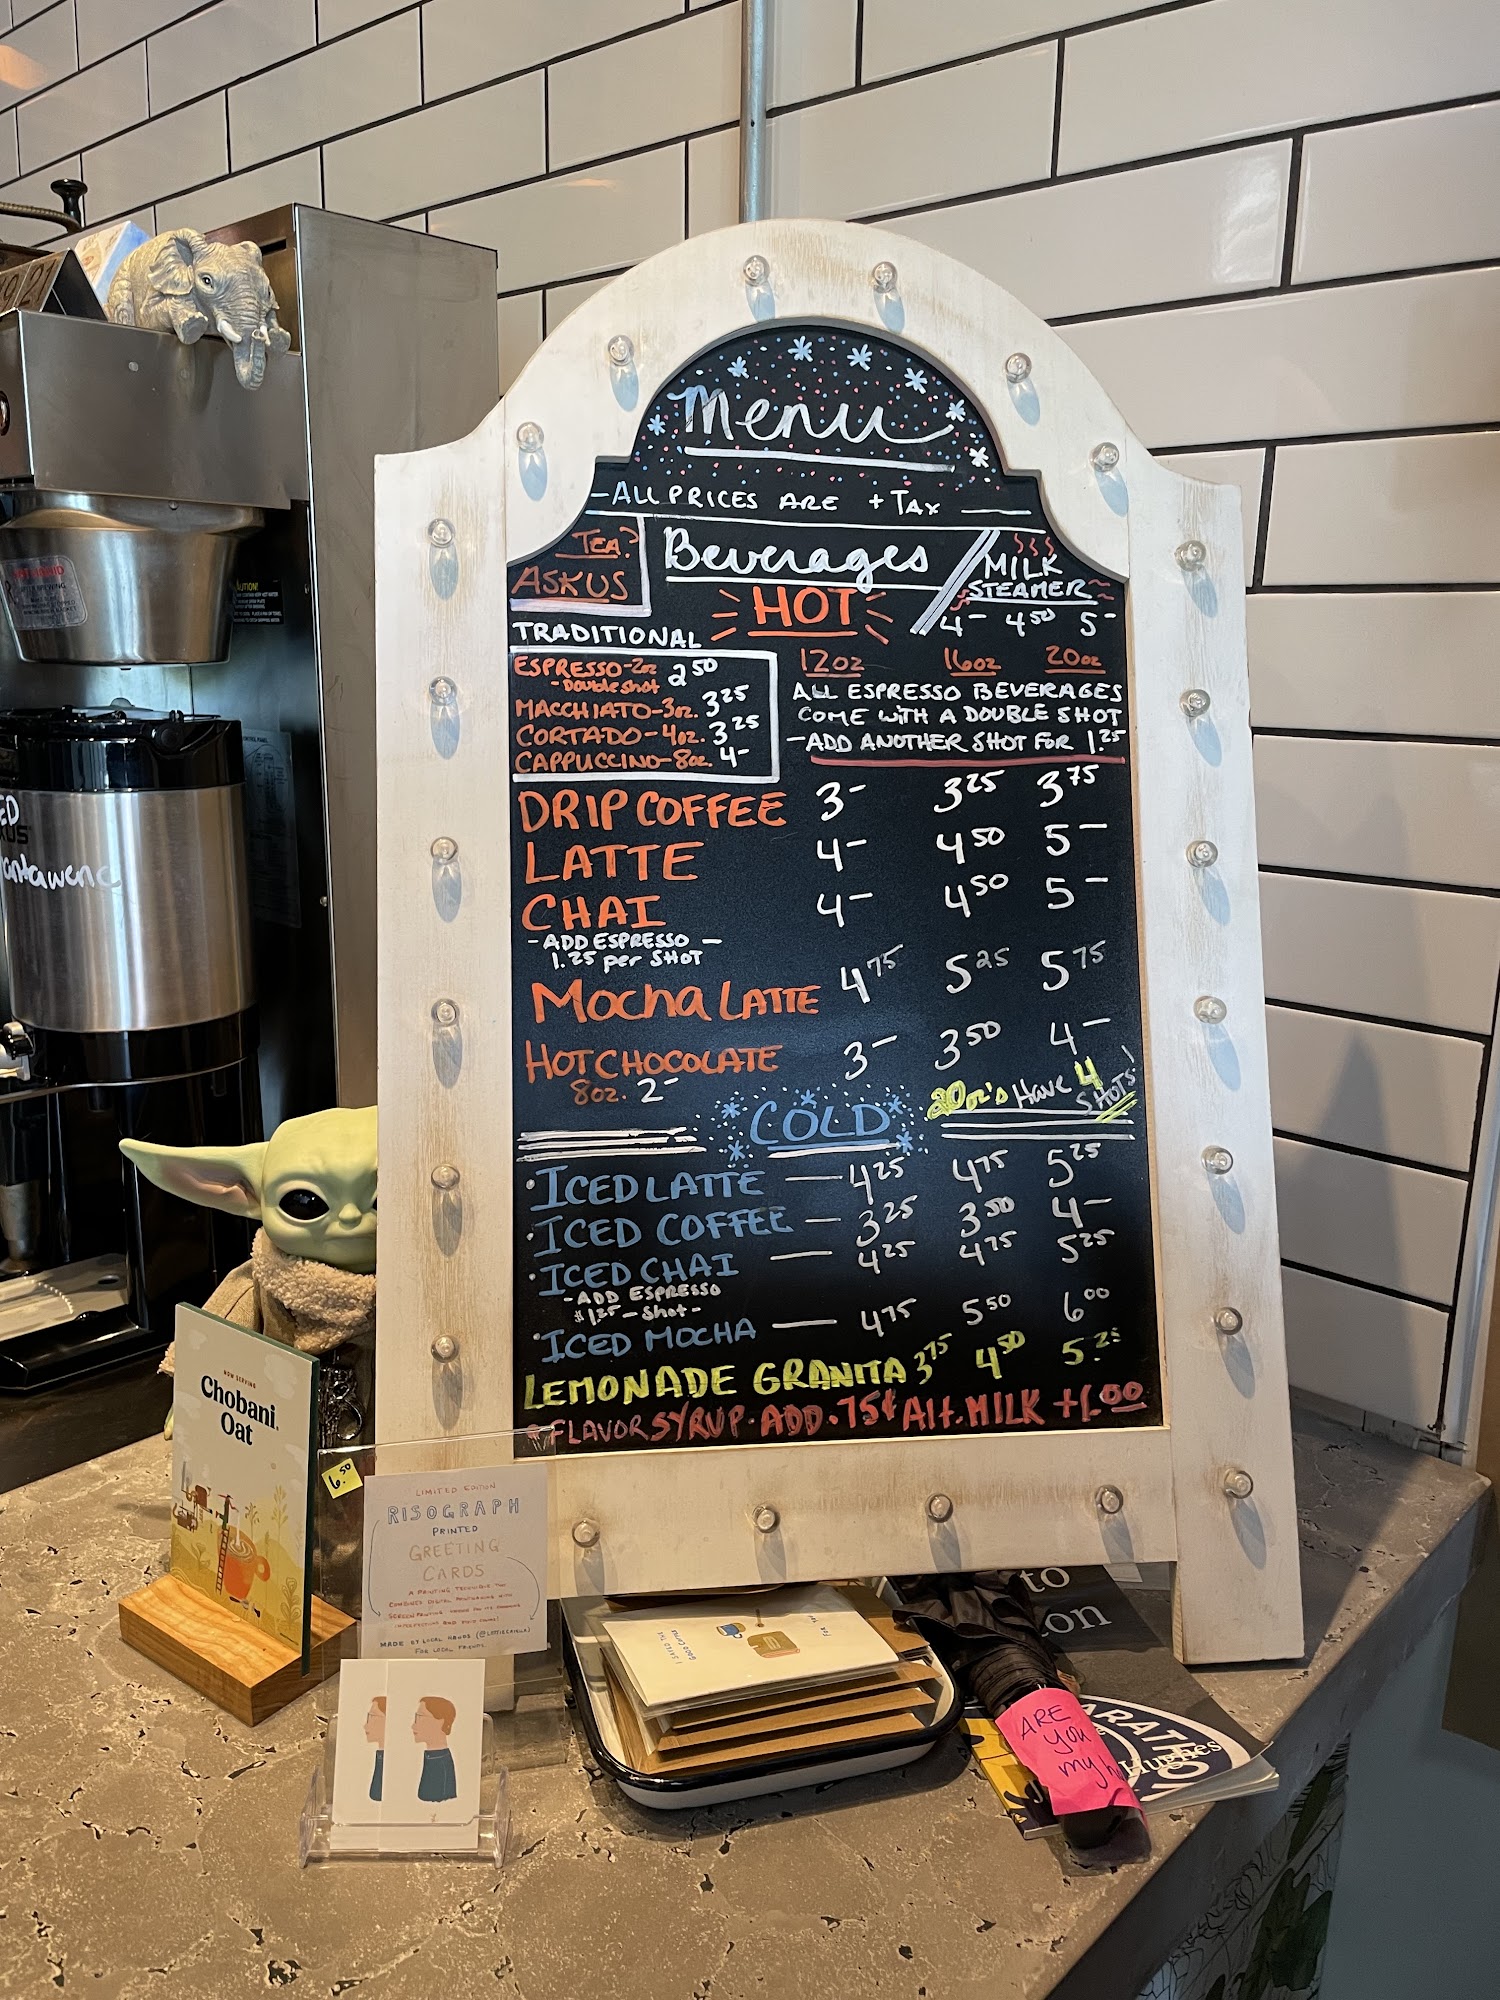 Menu
-ALL PRICES ARE + TAX
TEA?
ASK US
Beverages
HOT
MILK
STEAMER
4- 4.50 5-
TRADITIONAL
ESPRESSO-2oz 2.50
-Double shot
MACCHIATO-3oz. 3.25
CORTADO-4oz. 3.25
CAPPUCCINO-8oz. 4-
12oz 16oz 20oz
ALL ESPRESSO BEVERAGES
COME WITH A DOUBLE SHOT
-ADD ANOTHER SHOT FOR 1.25
DRIP COFFEE 3- 3.25 3.75
LATTE 4- 4.50 5-
CHAI 4- 4.50 5-
-ADD ESPRESSO-
1.25 per SHOT
Mocha LATTE 4.75 5.25 5.75
HOT CHOCOLATE 3- 3.50 4-
8oz. 2-
COLD
20oz's Have 4
SHOTS!
·ICED LATTE — 4.25 4.75 5.25
·ICED COFFEE — 3.25 3.50 4-
·ICED CHAI — 4.25 4.75 5.25
-ADD ESPRESSO
$1.25-Shot-
·ICED MOCHA — 4.75 5.50 6.00
LEMONADE GRANITA 3.75 4.50 5.25
*FLAVOR SYRUP·ADD·75¢ Alt. MILK +1.00
NOW SERVING
Chobani.
Oat
6.50
LIMITED EDITION
RISOGRAPH
PRINTED
GREETING
CARDS
A PRINTING TECHNIQUE THAT
COMBINES DIGITAL PRINTMAKING WITH
MADE BY LOCAL HANDS
FOR LOCAL FRIENDS.
GOOD COFFEE
FOR
to
on
ARE
you
my
Hughes